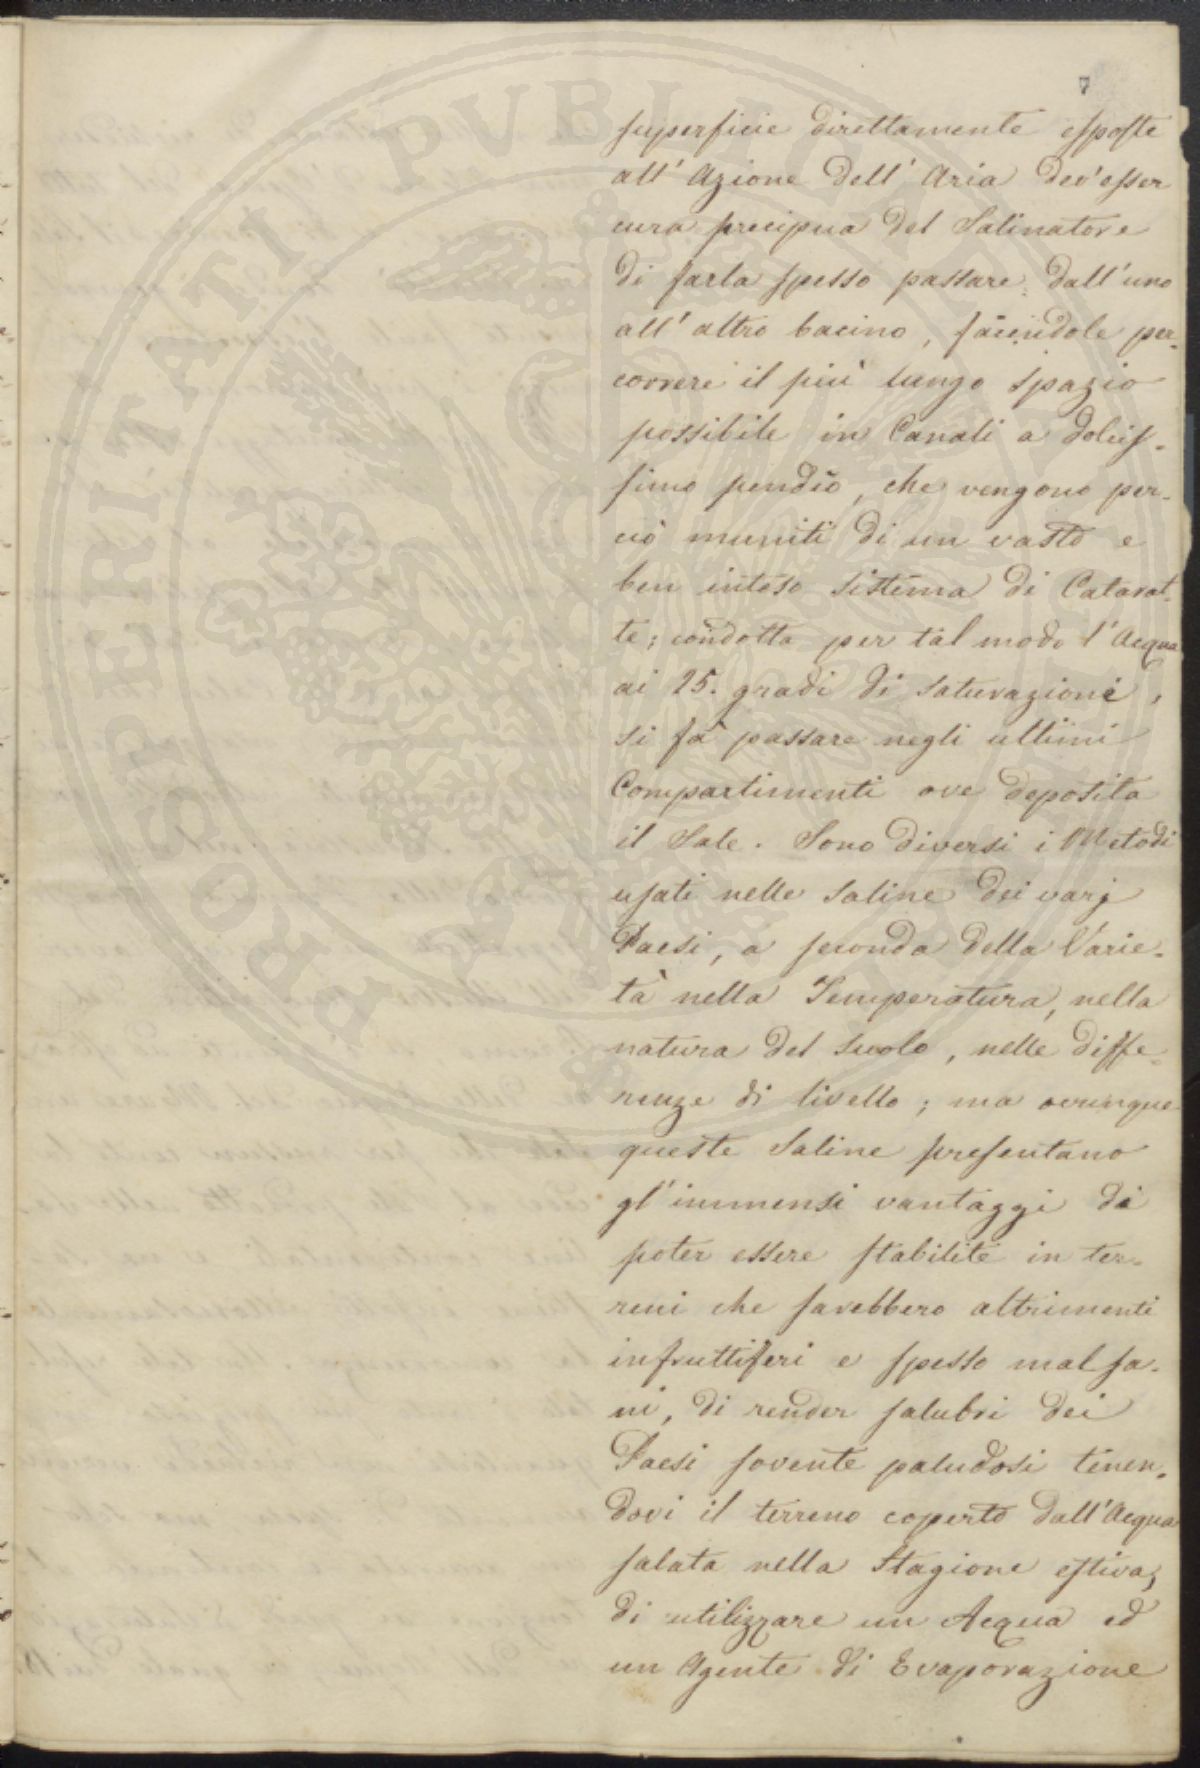 7
superficie direttamente esposte
all' Azione dell' Aria dev'esser
cura precipua del Salinatore
di farla spesso passare dall'uno
all' altro bacino, facendole per-
correre il più lungo spazio
possibile in Canali a dolcis-
simo pendìo, che vengono per-
ciò muniti di un vasto e
ben inteso sistema di Catarat-
te; condotta per tal modo l'Acqua
ai 25. gradi di saturazione,
si fà passare negli ultimi
Compartimenti ove deposita
il Sale. Sono diversi i Metodi
usati nelle saline dei varj
Paesi, a seconda della Varie-
tà nella Temperatura, nella
natura del suolo, nelle diffe-
renze di livello; ma ovunque
queste Saline presentano
gl'immensi vantaggi di
poter essere stabilite in ter-
reni che sarebbero altrimenti
infruttiferi e spesso mal sa-
ni, di render salubri dei
Paesi sovente paludosi tenen-
dovi il terreno coperto dall'Acqua
salata nella Stagione estiva,
di utilizzare un Acqua ed
un Agente di Evaporazione
PROSPERITATI PVBLICAE